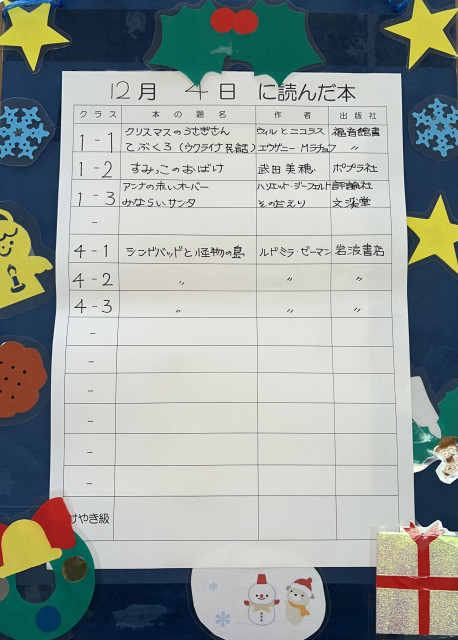 12月 4日 に読んだ本
クラス 本の題名 作者 出版社
1-1 クリスマスのうさぎさん ウィルとニコラス 福音館書
てぶくろ(ウクライナ民話) エウゲニー・Mラチョフ 〃
1-2 すみっこのおばけ 武田美穂 ポプラ社
1-3 アンナの赤いオーバー ハリエット・ジーフェルト 評論社
みならいサンタ そのだえり 文溪堂
-
4-1 シンドバッドと怪物の島 ルドミラ・ゼーマン 岩波書店
4-2 〃 〃 〃
4-3 〃 〃 〃
-
-
-
-
-
-
けやき級